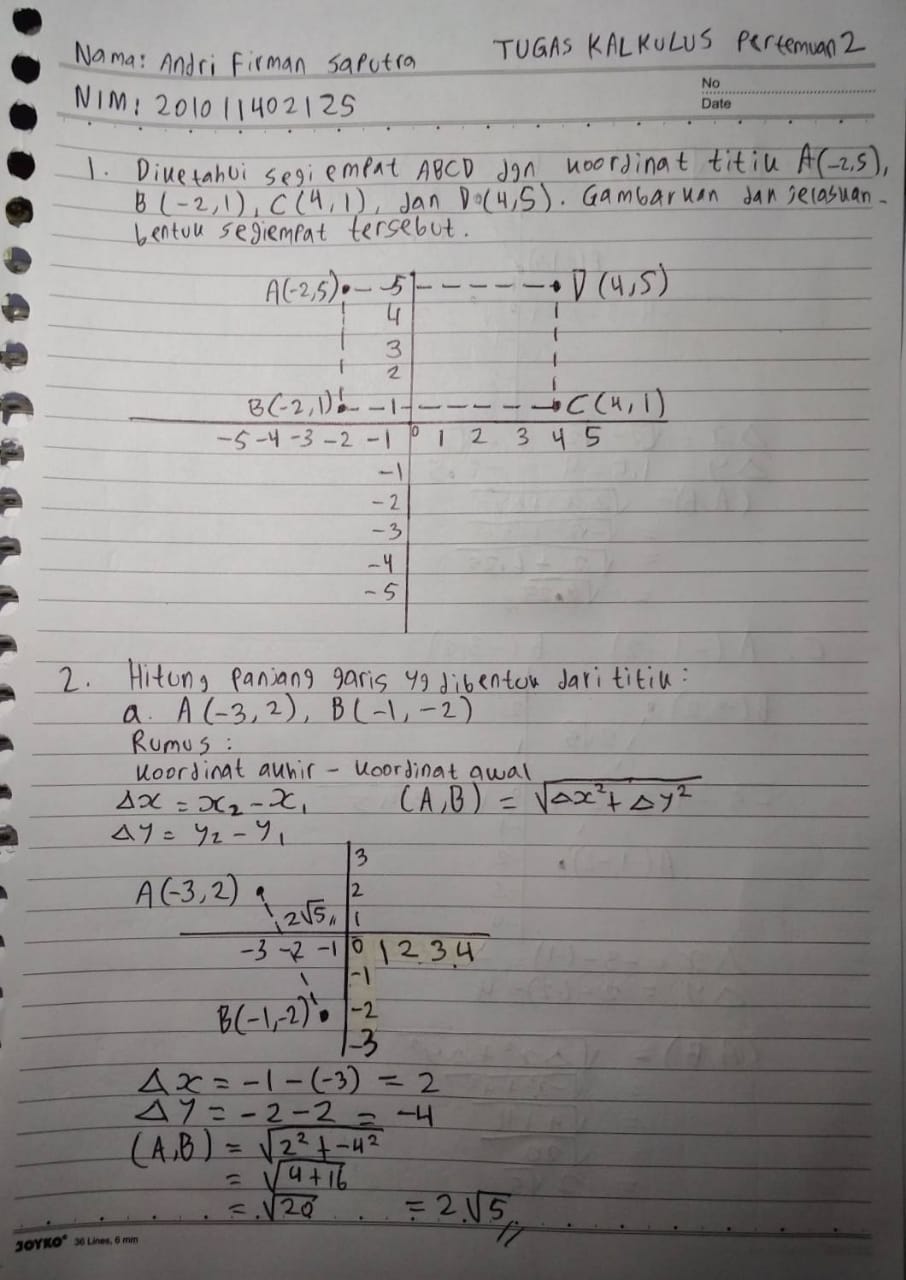 Nama: Andri Firman Saputra TUGAS KALKULUS Pertemuan 2
NIM: 201011402125
No
Date
1. Diketahui segi empat ABCD dgn koordinat titik A(-2,5),
B(-2,1), C(4,1), dan D(4,5). Gambarkan dan jelaskan
bentuk segiempat tersebut.
A(-2,5) 5 D(4,5)
4
3
2
B(-2,1) 1 C(4,1)
-5 -4 -3 -2 -1 0 1 2 3 4 5
-1
-2
-3
-4
-5
2. Hitung panjang garis yg dibentuk dari titik:
a. A(-3,2), B(-1,-2)
Rumus:
Koordinat akhir - Koordinat awal
Δx = x₂ - x₁ (A,B) = √Δx²+Δy²
Δy = y₂ - y₁
3
A(-3,2) 2
2√5 1
-3 -2 -1 0 1 2 3 4
-1
B(-1,-2) -2
-3
Δx = -1-(-3) = 2
Δy = -2-2 = -4
(A,B) = √2²+-4²
= √4+16
= √20 = 2√5
JOYKO 36 Lines, 6 mm